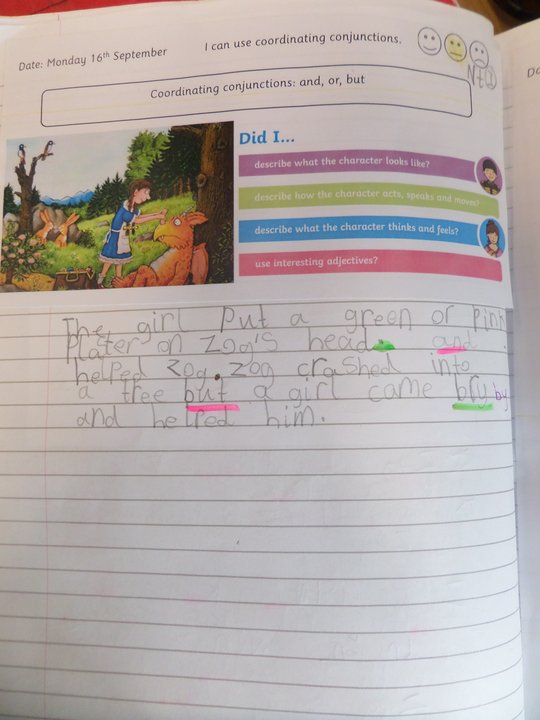 Date: Monday 16th September
I can use coordinating conjunctions.
Coordinating conjunctions: and, or, but
Did I...
describe what the character looks like?
describe how the character acts, speaks and moves?
describe what the character thinks and feels?
use interesting adjectives?
The girl Put a green or Pink
Plater on Zog's head and
helped Zog. Zog crashed into
a tree but a girl came bly by
and helped him.